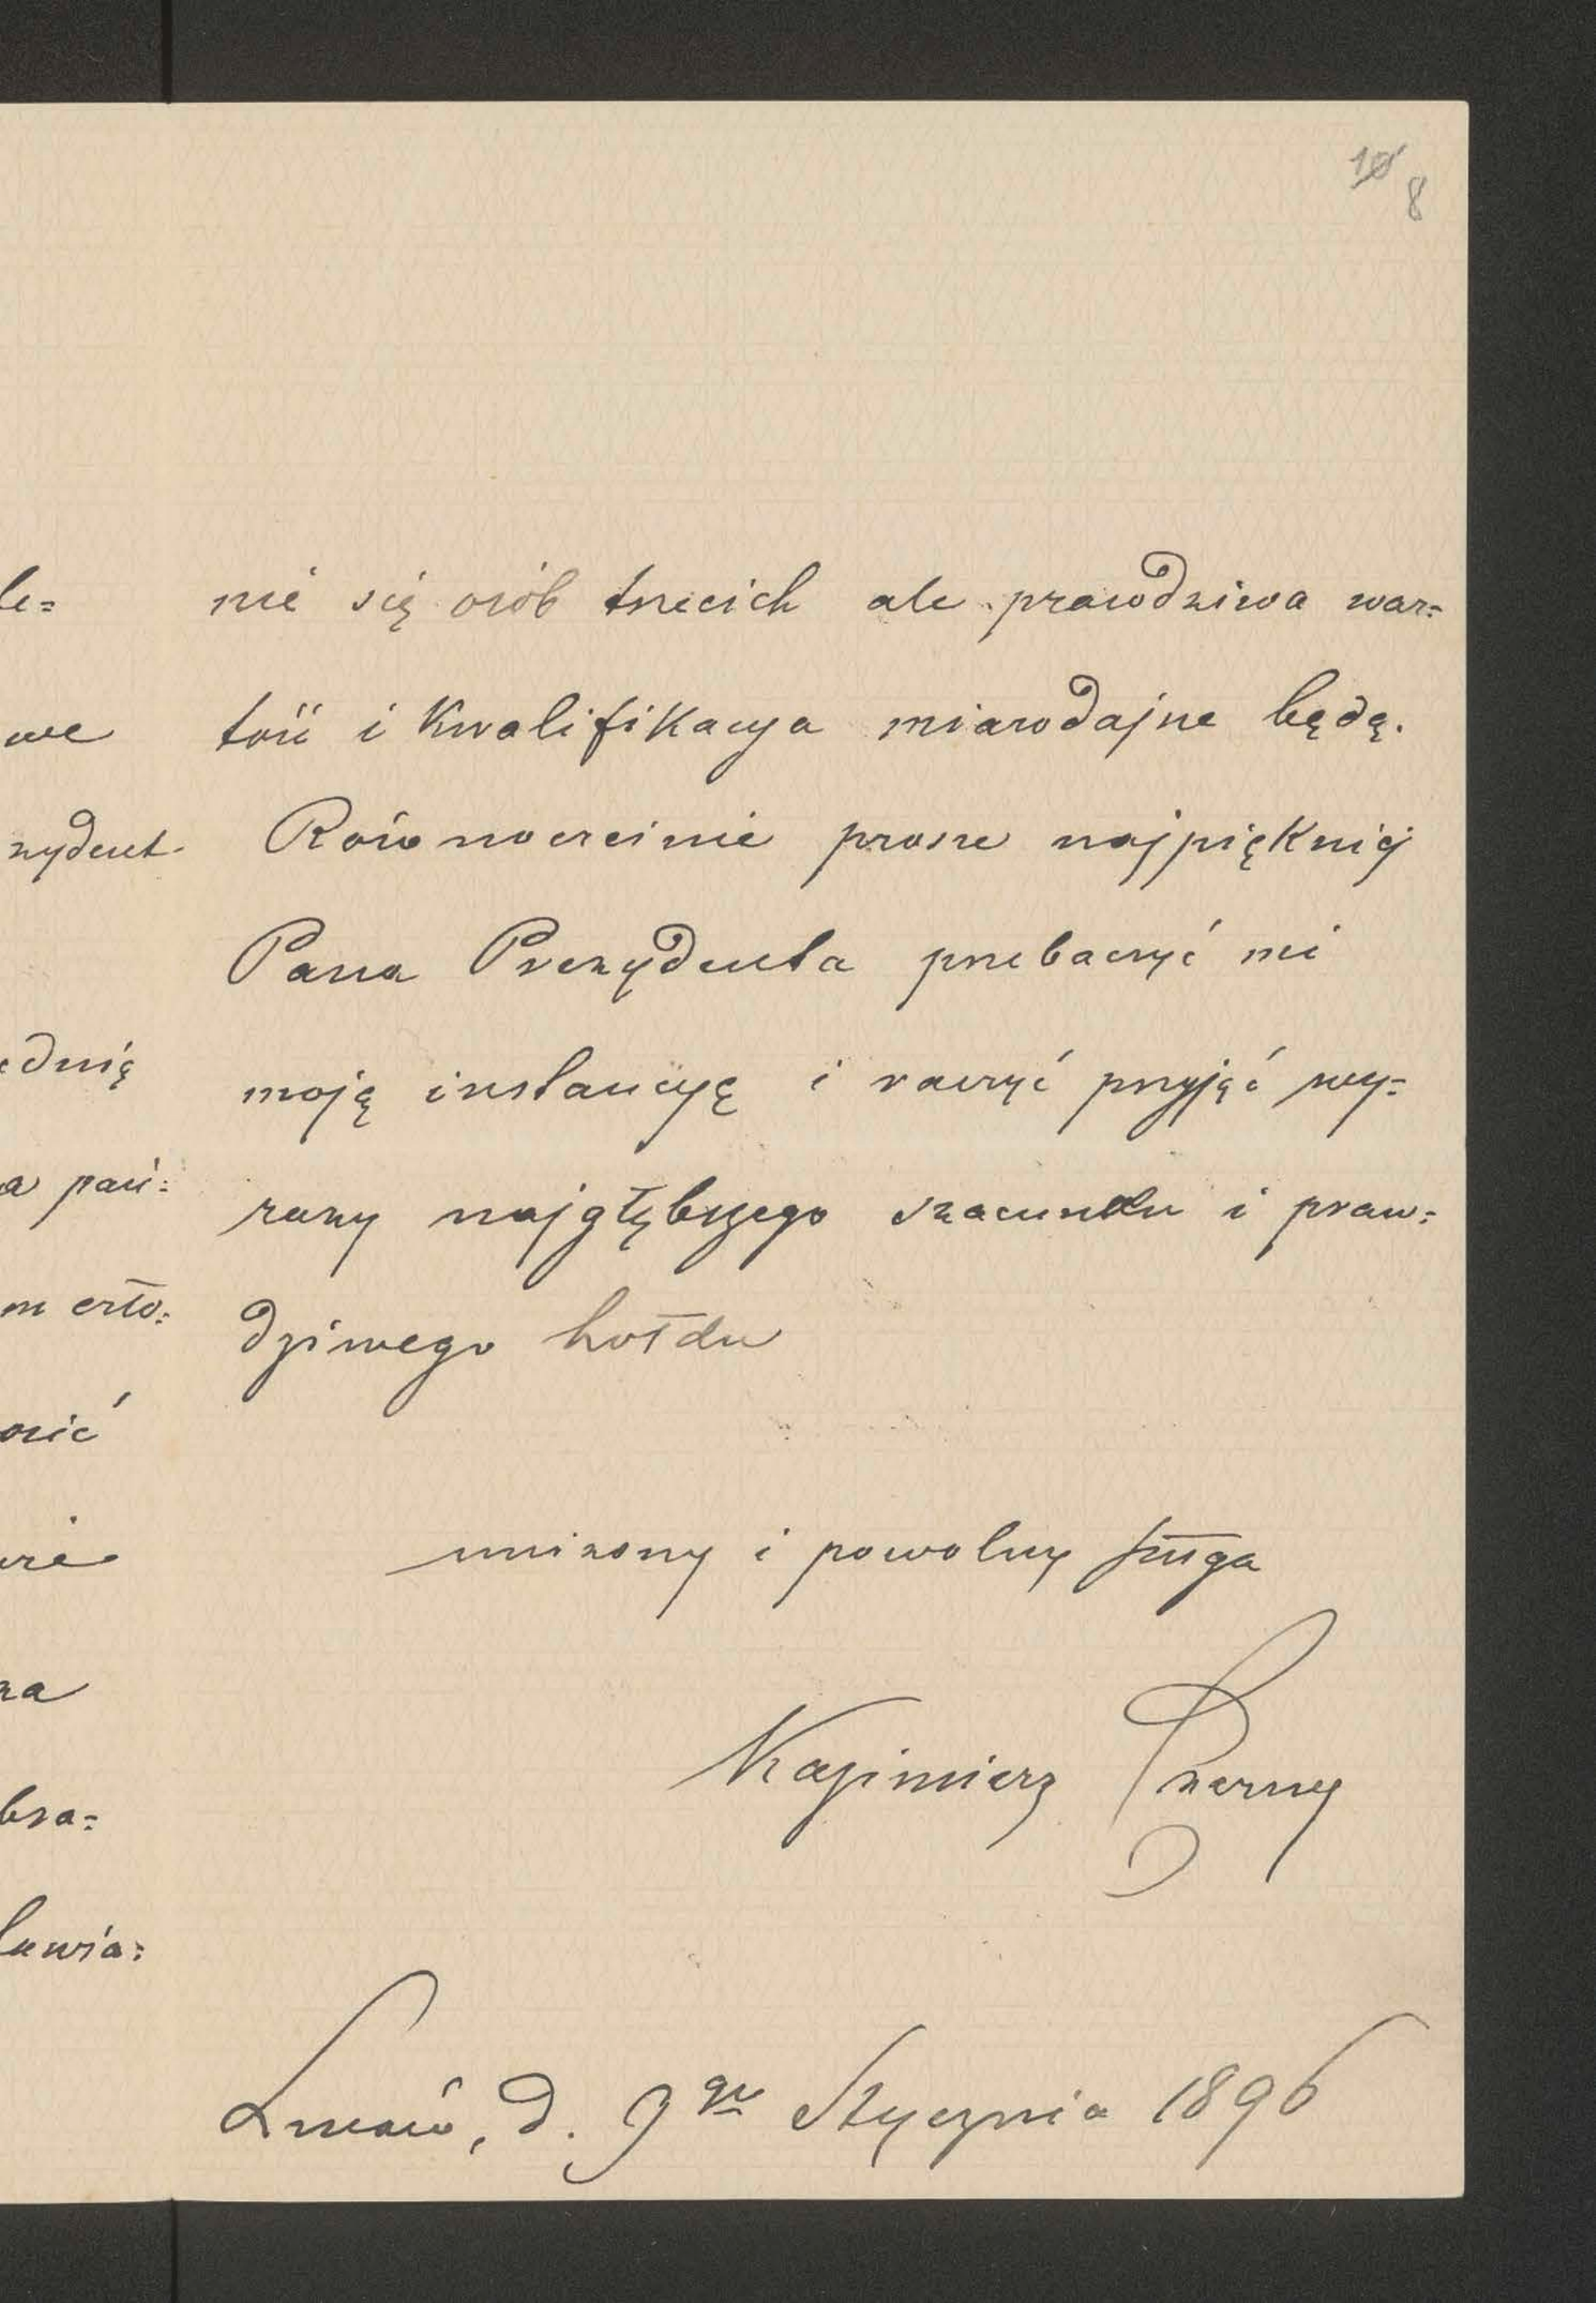 10 8
nie się osób trzecich ale prawdziwa war=
tość i kwalifikacya miarodajne będą.
Równocześnie proszę najpiękniéj
Pana Prezydenta przebaczyć mi
moją instancyę i raczyć przyjąć wy=
razy najgłębszego szacunku i praw=
dziwego hołdu
uniżony i powolny sługa
Kazimierz Czarny
Lwów, d. 9go Stycznia 1896
le=
we
zydent
ednią
a pań=
m czło=
osić
wie
za
bra=